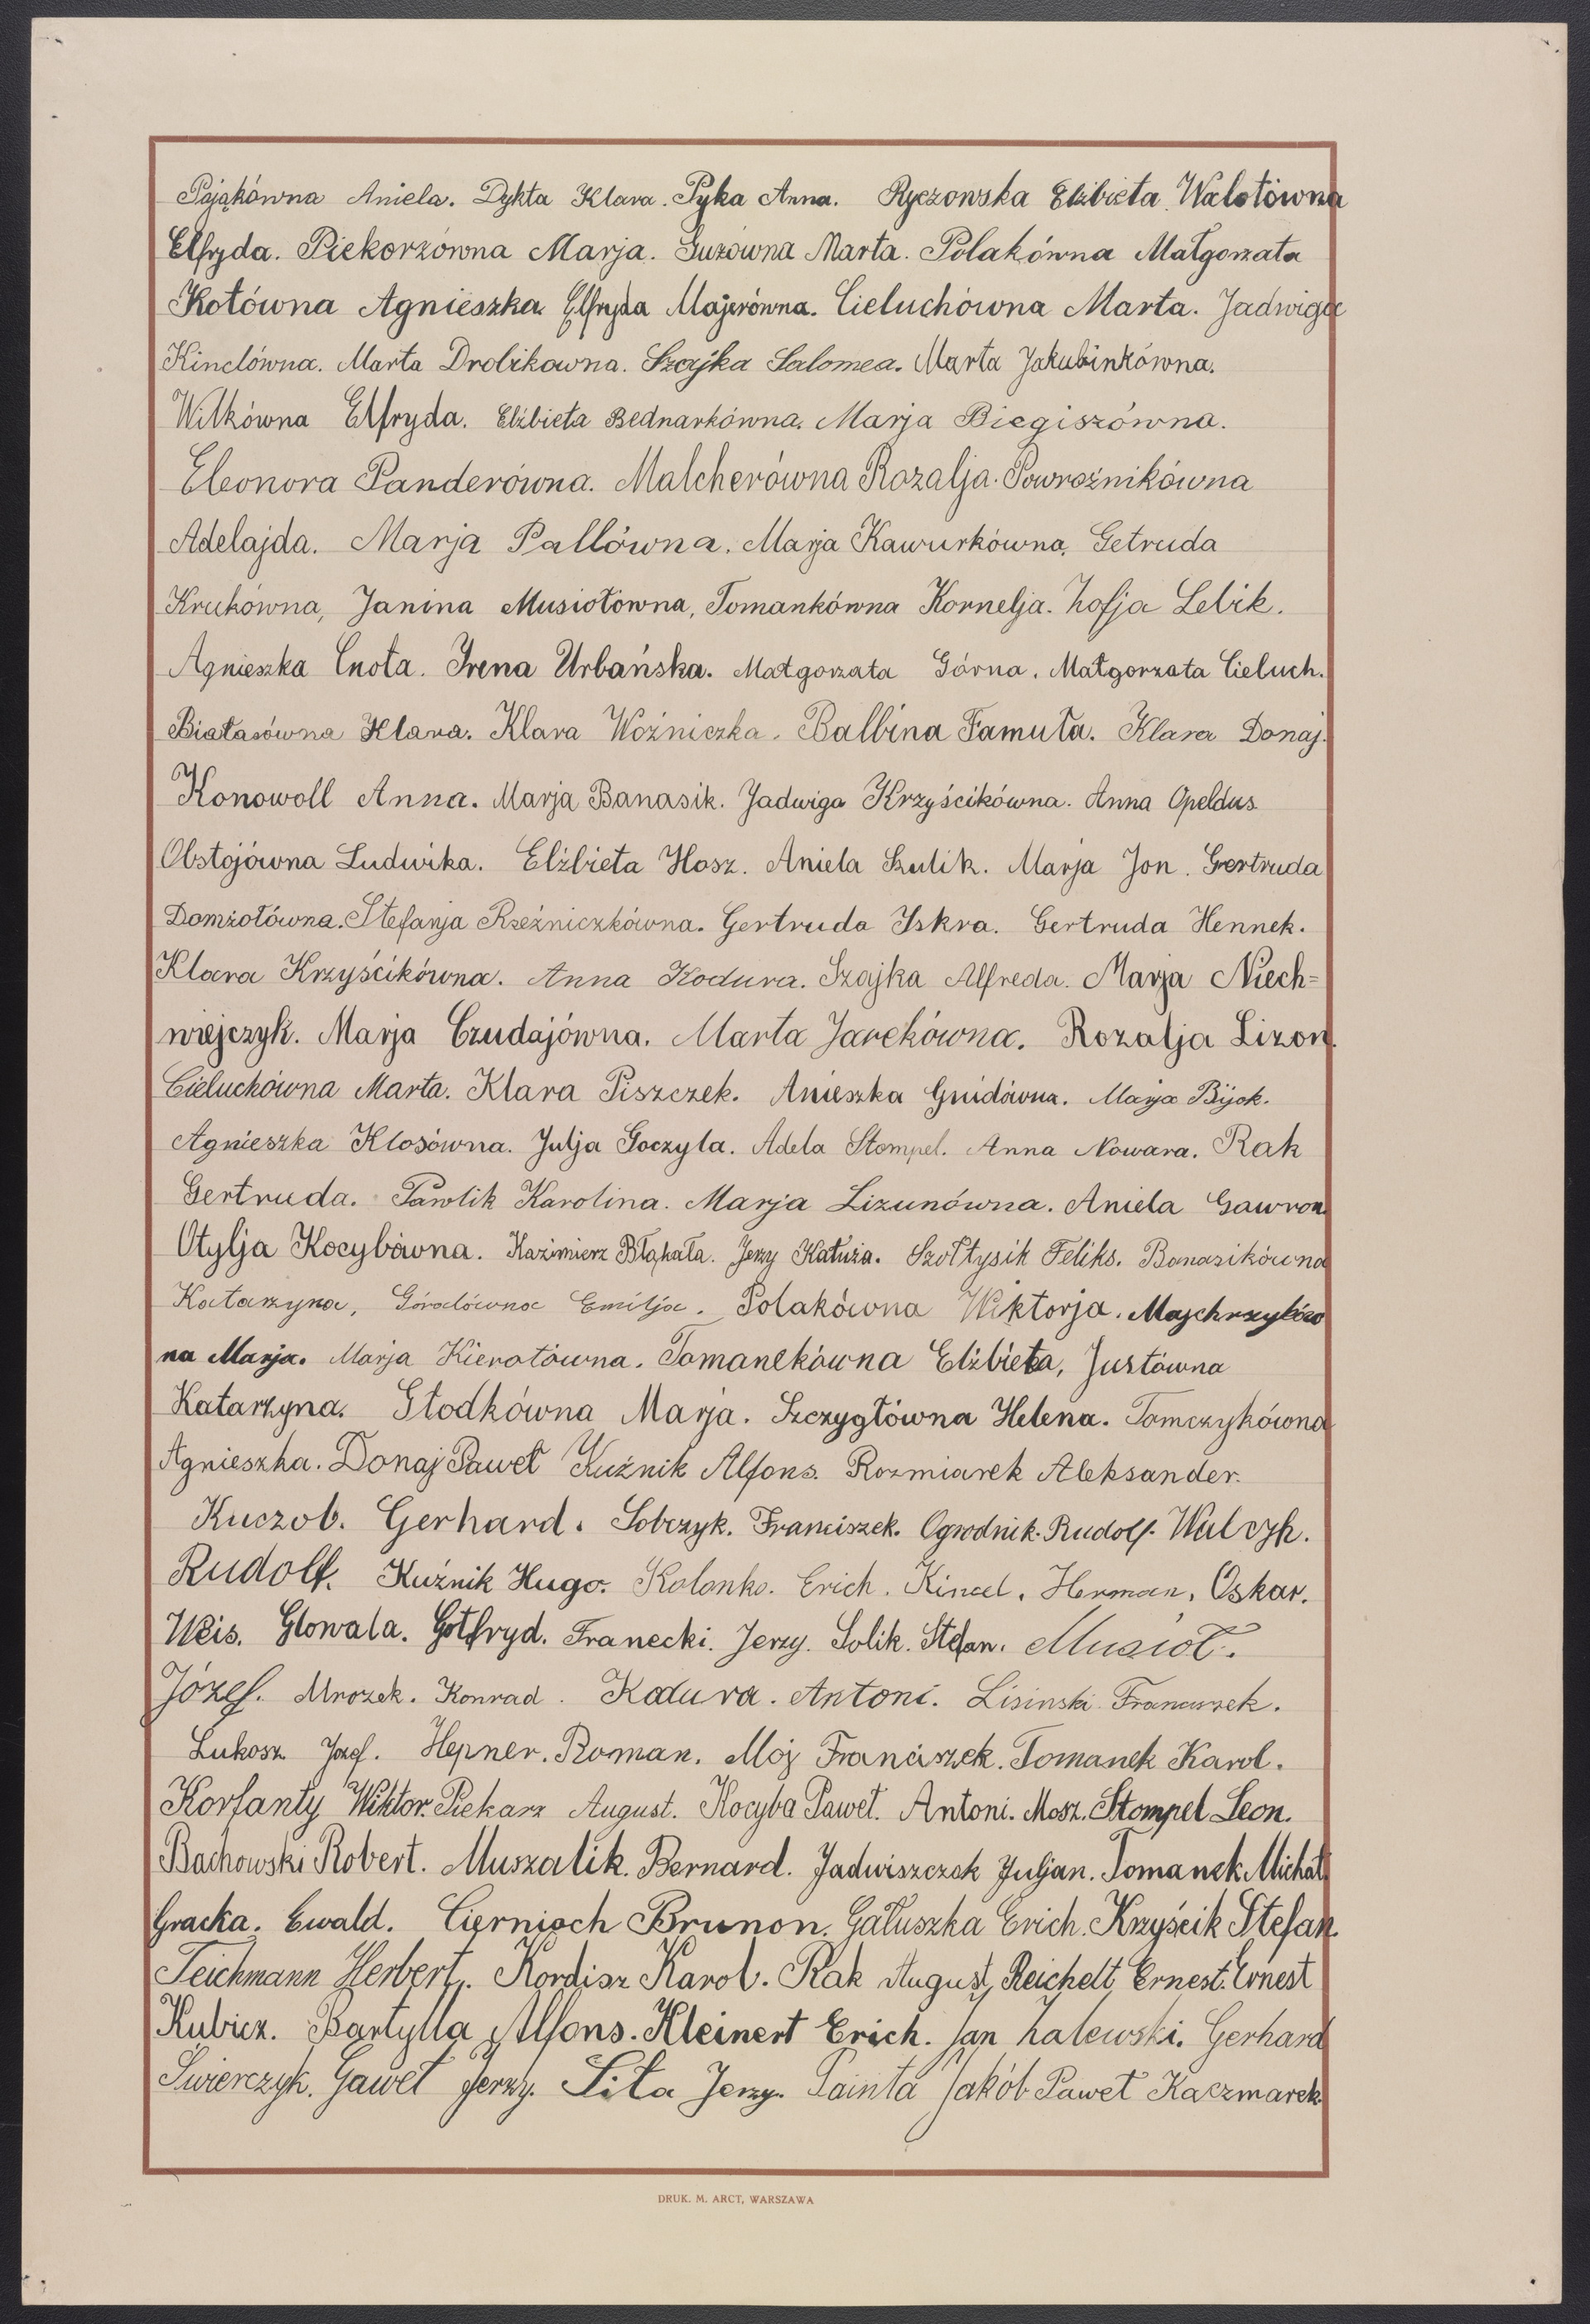 Pająkówna Aniela. Dykta Klara. Pyka Anna. Ryczowska Elżbieta Walotówna
Elfryda. Piekorzówna Marja. Guzówna Marta. Polakówna Małgorzata
Kotówna Agnieszka. Elfryda Majerówna. Cieluchówna Marta. Jadwiga
Kinclówna. Marta Drobikowna. Szajka Salomea. Marta Jakubinkówna.
Wilkówna Elfryda. Elżbieta Bednarkówna. Marja Biegiszówna.
Eleonora Panderówna. Malcherówna Rozalja. Powroźnikówna
Adelajda. Marja Pallówna. Marja Kawurkówna. Getruda
Krukówna, Janina Musiołówna, Tomankówna Kornelja. Zofja Lebik.
Agnieszka Cnota. Irena Urbańska. Małgorzata Górna. Małgorzata Cieluch.
Białasówna Klara. Klara Woźniczka. Balbina Famuła. Klara Donaj.
Konowoll Anna. Marja Banasik. Jadwiga Krzyścikówna. Anna Opeldus
Obstojówna Ludwika. Elżbieta Hosz. Aniela Szulik. Marja Jon. Gertruda
Domżołówna. Stefanja Rzeźniczkówna. Gertruda Iskra. Gertruda Hennek.
Klara Krzyścikówna. Anna Kodura. Szajka Alfreda. Marja Niech=
wiejczyk. Marja Czudajówna. Marta Jarekówna. Rozalja Lizon.
Cieluchówna Marta. Klara Piszczek. Anieszka Gnidówna. Marja Bijok.
Agnieszka Klosówna. Julja Goczyla. Adela Stompel. Anna Nowara. Rak
Gertruda. Pawlik Karolina. Marja Lizunówna. Aniela Gawron
Otylja Kocybówna. Kazimierz Błąkała. Jerzy Kałuża. Szołtysik Feliks. Banasikówna
Katarzyna, Góralówna Emilja. Polakówna Wiktorja. Majchrzyków
na Marja. Marja Kierotówna. Tomanekówna Elżbieta, Justówna
Katarzyna. Głodkówna Marja. Szczygłówna Helena. Tomczykówna
Agnieszka. Donaj Paweł Kuźnik Alfons. Rozmiarek Aleksander.
Kuczob. Gerhard. Sobczyk. Franciszek. Ogrodnik. Rudolf. Walczyk.
Rudolf. Kuźnik Hugo. Kolonko. Erich. Kincel. Herman. Oskar.
Weis. Glowala. Gotfryd. Franecki. Jerzy. Solik. Stefan. Musioł.
Józef. Mrozek. Konrad. Kodura. Antoni. Lisinski Franciszek.
Lukosz Józef. Hepner. Roman. Moj Franciszek. Tomanek Karol.
Korfanty Wiktor. Piekarz August. Kocyba Paweł. Antoni. Mosz. Stompel Leon.
Bachowski Robert. Muszalik. Bernard. Jadwiszczok Juljan. Tomanek Michał
Gracka. Ewald. Cierniach Brunon. Gałuszka Erich. Krzyścik Stefan.
Teichmann Herbert. Kordisz Karol. Rak August, Reichelt Ernest. Ernest
Kubicz. Bartylla Alfons. Kleinert Erich. Jan Zalewski. Gerhard
Świerczyk. Gaweł Jerzy. Sita Jerzy. Painta Jakób Paweł Kaczmarek
DRUK. M. ARCT, WARSZAWA